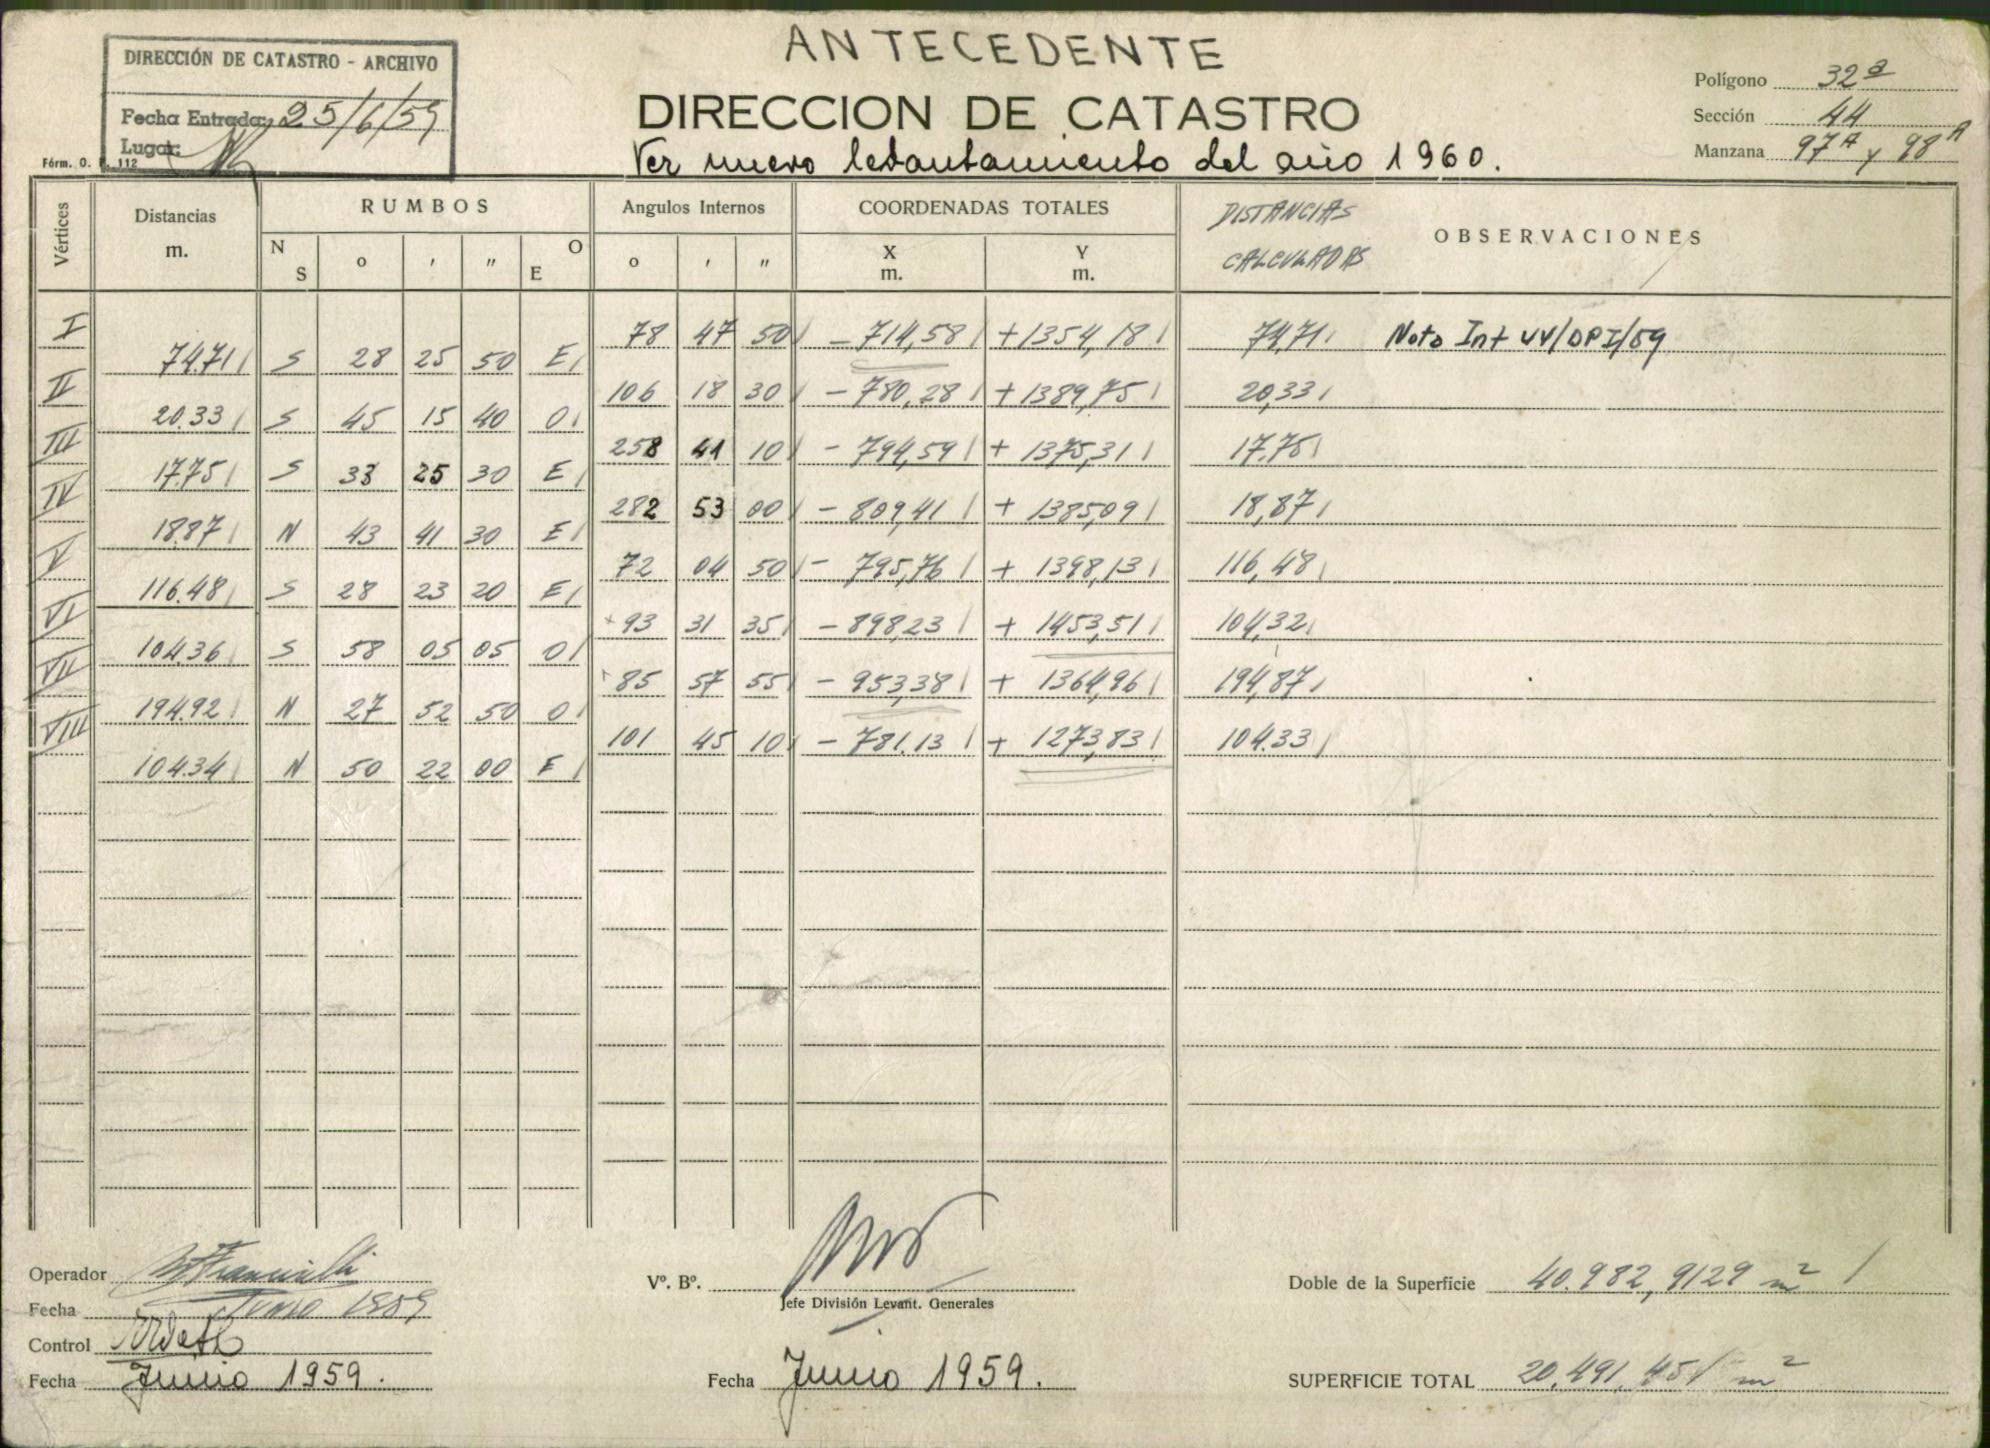 ANTECEDENTE
DIRECCIÓN DE CATASTRO - ARCHIVO
Fecha Entrada: 25/6/59
Lugar:
Fórm. O. P. 112
DIRECCION DE CATASTRO
Ver nuevo levantamiento del año 1960.
Polígono 32a
Sección 44
Manzana 97A y 98A
Vértices Distancias m. RUMBOS Angulos Internos COORDENADAS TOTALES DISTANCIAS CALCULADAS OBSERVACIONES
N S o ' " E O o ' " X m. Y m.
I 78 47 50 - 714,58 + 1354,18 74,71 Nota Int UV/DPI/59
74.71 S 28 25 50 E
II 106 18 30 - 780,28 + 1389,75 20,33
20.33 S 45 15 40 O
III 258 41 10 - 794,59 + 1375,31 17,75
17.75 S 33 25 30 E
IV 282 53 00 - 809,41 + 1385,09 18,87
18.87 N 43 41 30 E
V 72 04 50 - 795,76 + 1398,13 116,48
116.48 S 28 23 20 E
VI 93 31 35 - 898,23 + 1453,51 104,32
104.36 S 58 05 05 O
VII 85 57 55 - 953,38 + 1364,96 194,87
194.92 N 27 52 50 O
VIII 101 45 10 - 781.13 + 1273,83 104.33
104.34 N 50 22 00 E
Operador
Fecha Junio 1959
Control
Fecha Junio 1959.
Vº. Bº.
Jefe División Levant. Generales
Fecha Junio 1959.
Doble de la Superficie 40.982,9129 m2
SUPERFICIE TOTAL 20.491,45 m2